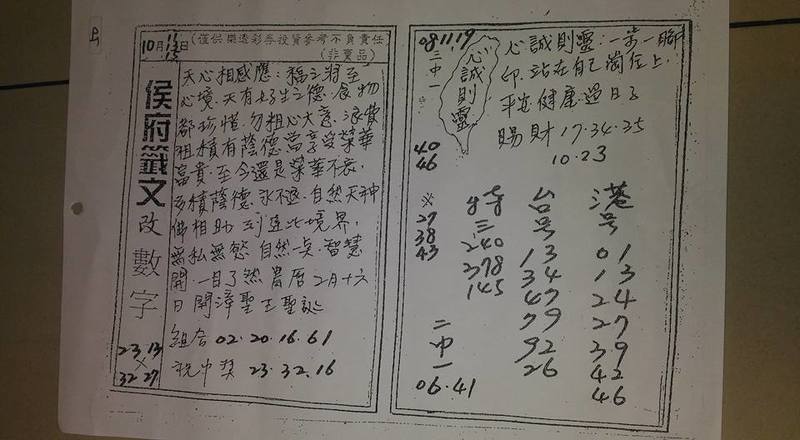 10月11 13 15日
(僅供樂透彩券投資參考不負責任)
(非賣品)
侯府籤文
改數字
23 13
×
32 27
天心相感應:福之將至
心境.天有好生之德.食物
都珍惜.勿粗心大意.浪費
祖積有蔭德當享受榮華
富貴.至今還是榮華不衰.
多積蔭德.永不退.自然天神
佛相助.到達此境界,
無私無慾.自然一點.智慧
開.一目了然.農曆2月十六
日開漳聖王聖誕
組合02.20.16.61
祝中獎 23.32.16
08 11 19
二中一
40
46
※
27
38
43
二中一
06.41
心誠則靈
心誠則靈.一步一腳
印.站在自己崗位上.
平安健康.過日子
賜財17.34.35
10.23
三
240
378
145
台號
13
34
47
79
92
26
港號
01
13
24
27
39
42
46